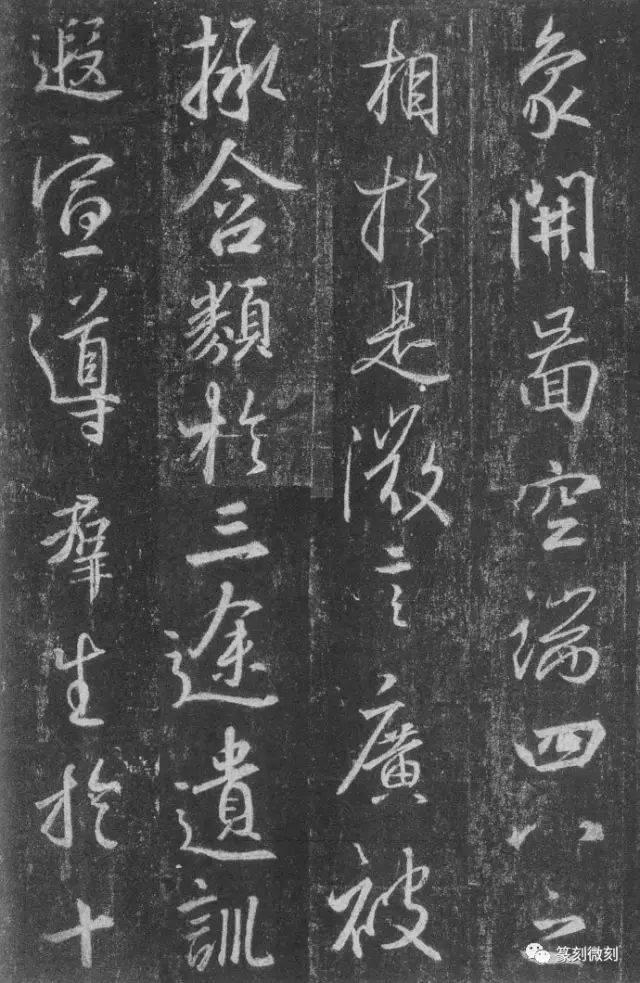 象開啚空端四八之
相於是微言廣被
拯含類於三途遺訓
遐宣導羣生於十
篆刻微刻